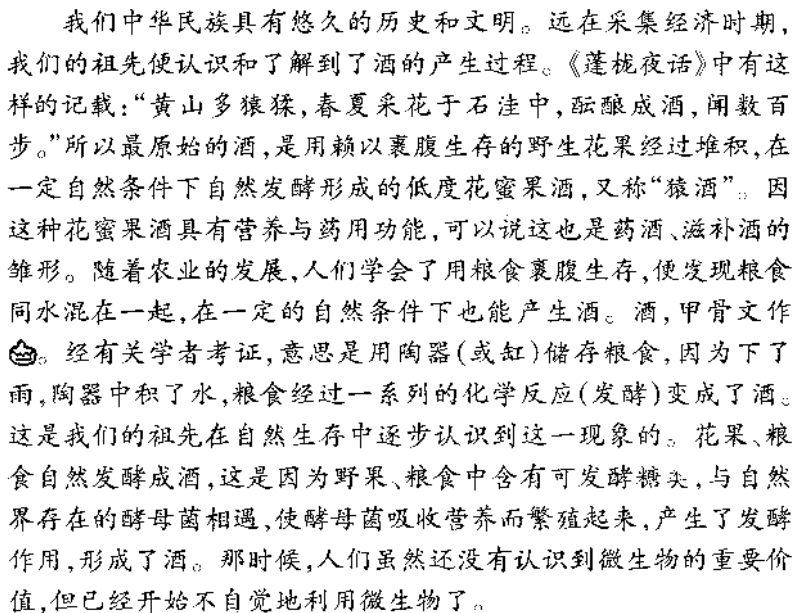 我们中华民族具有悠久的历史和文明。远在采集经济时期,
我们的祖先便认识和了解到了酒的产生过程。《蓬栊夜话》中有这
样的记载:“黄山多猿猱,春夏采花于石洼中,酝酿成酒,闻数百
步。”所以最原始的酒,是用赖以裹腹生存的野生花果经过堆积,在
一定自然条件下自然发酵形成的低度花蜜果酒,又称“猿酒”。因
这种花蜜果酒具有营养与药用功能,可以说这也是药酒、滋补酒的
雏形。随着农业的发展,人们学会了用粮食裹腹生存,便发现粮食
同水混在一起,在一定的自然条件下也能产生酒。酒,甲骨文作
。经有关学者考证,意思是用陶器(或缸)储存粮食,因为下了
雨,陶器中积了水,粮食经过一系列的化学反应(发酵)变成了酒。
这是我们的祖先在自然生存中逐步认识到这一现象的。花果、粮
食自然发酵成酒,这是因为野果、粮食中含有可发酵糖类,与自然
界存在的酵母菌相遇,使酵母菌吸收营养而繁殖起来,产生了发酵
作用,形成了酒。那时候,人们虽然还没有认识到微生物的重要价
值,但已经开始不自觉地利用微生物了。